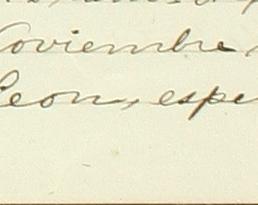 Noviembre
Leon, espe